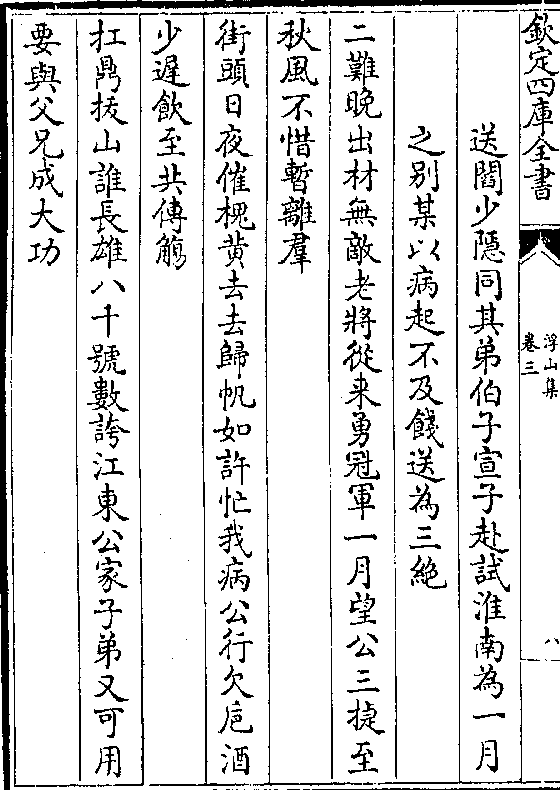 欽定四庫全書
浮山集
卷三
八
送閻少隱同其弟伯子宣子赴試淮南為一月
之別某以病起不及餞送為三絶
二難晚出材無敵老將從来勇冠軍一月望公三捷至
秋風不惜暫離羣
街頭日夜催槐黄去去歸帆如許忙我病公行欠巵酒
少遲飲至共傳觴
扛鼎拔山誰長雄八千號數誇江東公家子弟又可用
要與父兄成大功